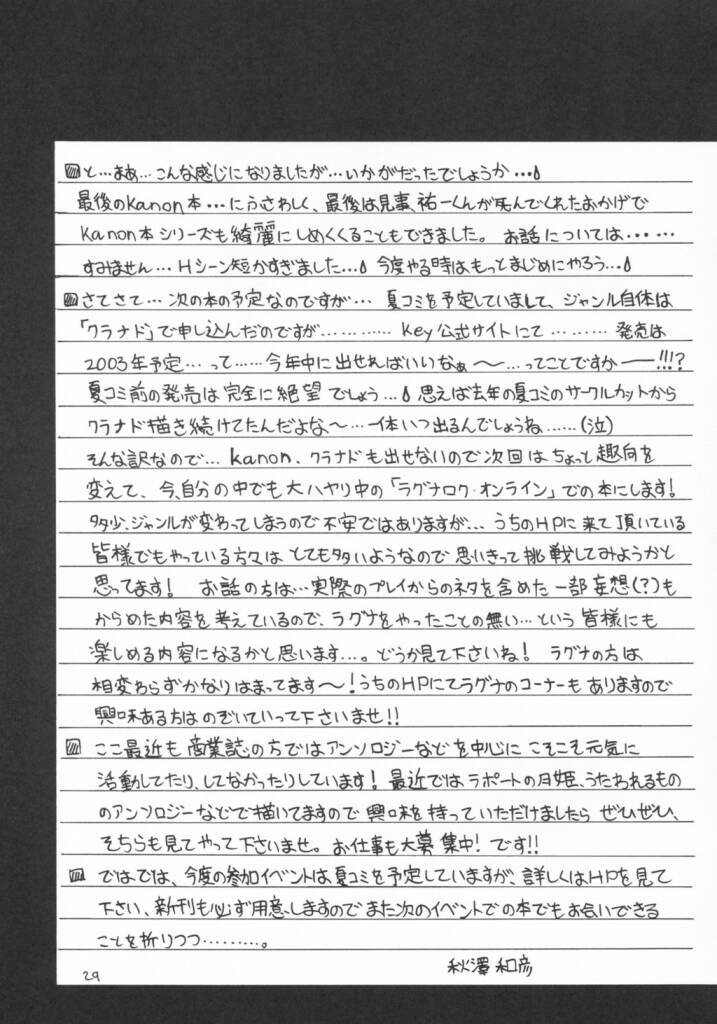 と…まぁ…こんな感じになりましたが…いかがだったでしょうか…
最後のkanon本…にふさわしく、最後は見事、祐一くんが死んでくれたおかげで
kanon本シリーズも綺麗にしめくくることもできました。 お話については……
すみません…Hシーン短かすぎました… 今度やる時はもっとまじめにやろう…
さてさて…次の本の予定なのですが… 夏コミを予定していまして、ジャンル自体は
「クラナド」で申し込んだのですが………… Key公式サイトにて………発売は
2003年予定…って……今年中に出せればいいなぁ〜…ってことですかー!!!?
夏コミ前の発売は完全に絶望でしょう… 思えば去年の夏コミのサークルカットから
クラナド描き続けてたんだよな〜…一体いつ出るんでしょうね……(泣)
そんな訳なので…kanon、クラナドも出せないので次回はちょっと趣向を
変えて、今、自分の中でも大ハヤリ中の「ラグナロク・オンライン」での本にします!
多少、ジャンルが変わってしまうので不安ではありますが… うちのHPに来て頂いている
皆様でもやっている方々はとても多いようなので思いきって挑戦してみようかと
思ってます! お話の方は…実際のプレイからのネタを含めた一部妄想(?)も
からめた内容を考えているので、ラグナをやったことの無い…という皆様にも
楽しめる内容になるかと思います…。どうか見て下さいね! ラグナの方は
相変わらずかなりはまってます〜!うちのHPにてラグナのコーナーもありますので
興味ある方はのぞいていって下さいませ!!
ここ最近も商業誌の方ではアンソロジーなどを中心にこそこそ元気に
活動してたり、してなかったりしています! 最近ではラポートの月姫、うたわれるもの
のアンソロジーなどで描いてますので興味を持っていただけましたらぜひぜひ、
そちらも見てやって下さいませ。お仕事も大募集中!です!!
ではでは、今度の参加イベントは夏コミを予定していますが、詳しくはHPを見て
下さい、新刊も必ず用意しますのでまた次のイベントでの本でもお会いできる
ことを祈りつつ………。
秋澤 和彦
29